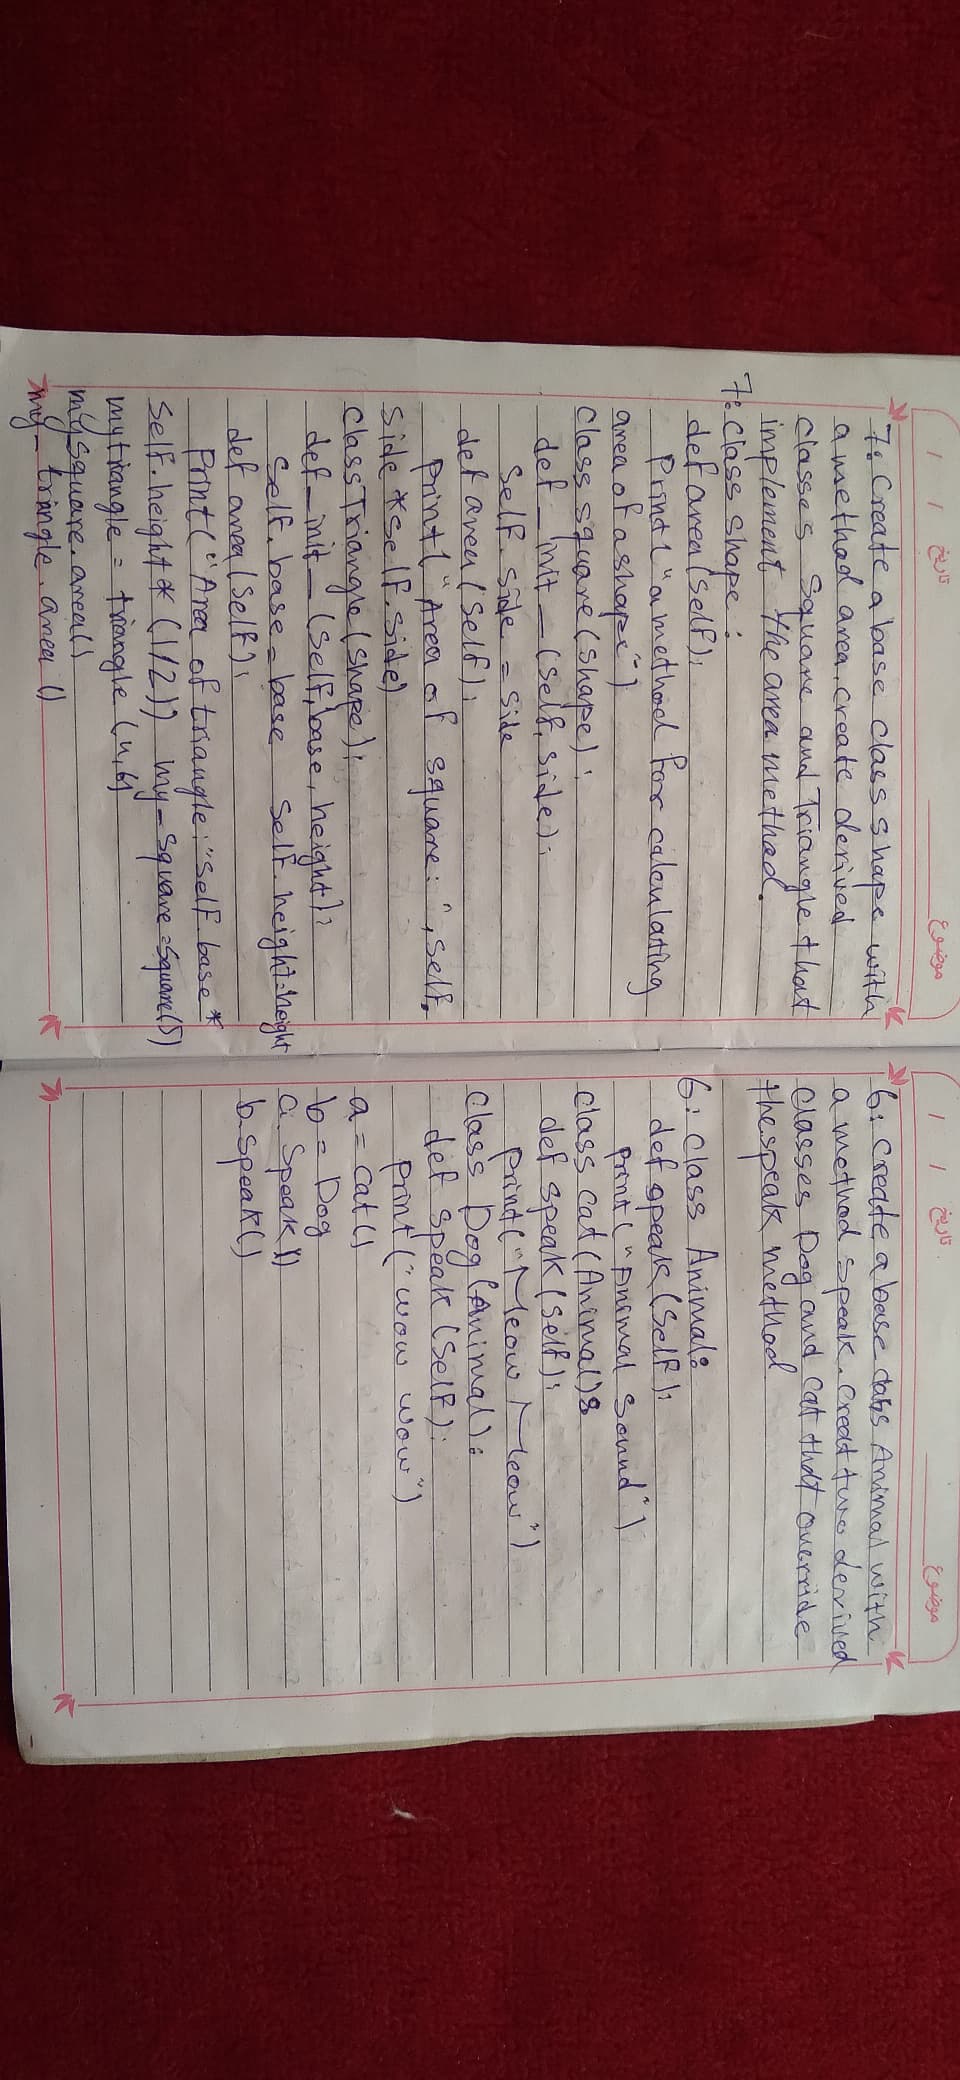 تاریخ / / موضوع
7: Create a base class shape with
a method area, create derived
classes Square and Triangle that
implement the area method.
7: class shape:
def area(self):
Print("a method for calculating
area of a shape")
class square(shape):
def __init__(self, side):
Self. side = side
def area(self):
Print("Area of square: ", self.
side *self.side)
class Triangle(shape):
def __init__(self, base, height):
Self. base = base Self. height = height
def area(self):
Print("Area of triangle: "self.base *
self.height * (1/2)) my_square=square(5)
mytriangle = triangle (4,6)
mysquare.area()
my_triangle.area ()
تاریخ / / موضوع
6: Create a base class Animal with
a method speak. creat two derived
classes Dog and Cat that override
the speak method
6: class Animal:
def speak(self):
Print("Animal sound")
class cat(Animal):
def speak(self):
Print("Meow Meow")
class Dog(Animal):
def speak(self):
Print("wow wow")
a = cat()
b = Dog
a. speak()
b. speak()